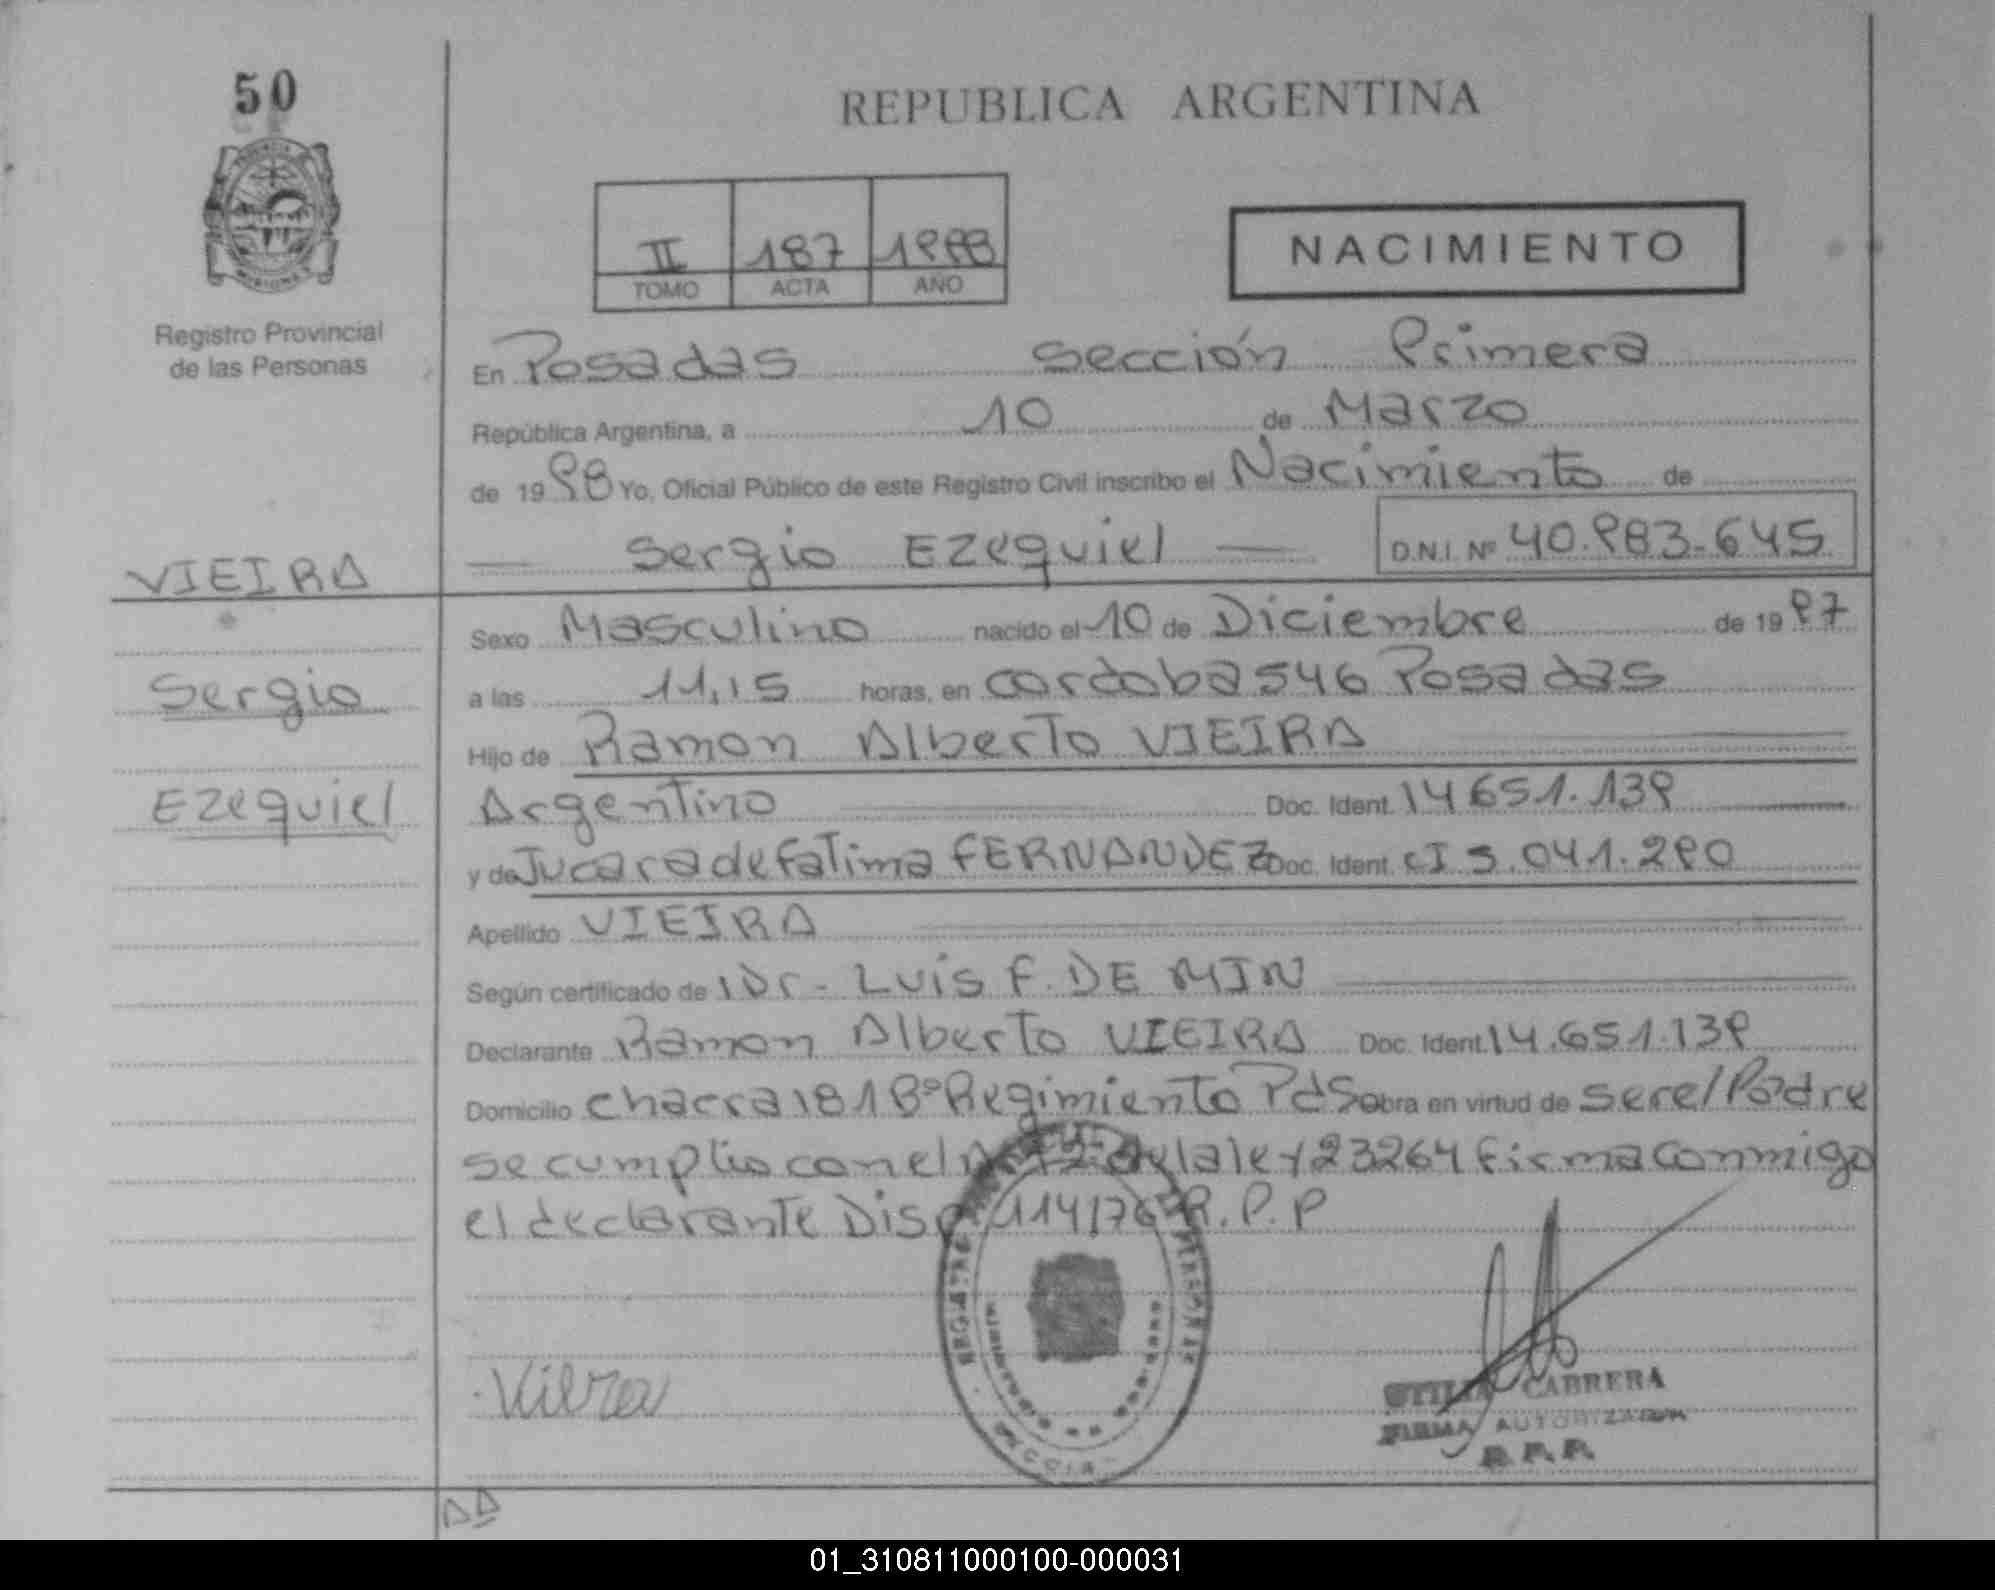 50
REPUBLICA ARGENTINA
II 187 1998
TOMO ACTA AÑO
NACIMIENTO
Registro Provincial
de las Personas
En Posadas Sección Primera
República Argentina, a 10 de Marzo
de 19 98 Yo, Oficial Público de este Registro Civil inscribo el Nacimiento de
Sergio Ezequiel D.N.I. Nº 40.983.645
VIEIRA
Sexo Masculino nacido el 10 de Diciembre de 19 97
Sergio
a las 11,15 horas, en cordoba 546 Posadas
Hijo de Ramon Alberto VIEIRA
Ezequiel
Argentino Doc. Ident. 14651.139
y de Jucara de Fatima FERNANDEZ Doc. Ident. CI 5.041.290
Apellido VIEIRA
Según certificado de 1Dr- Luis F. DE MIN
Declarante Ramon Alberto VIEIRA Doc. Ident. 14.651.139
Domicilio chacra 181 Bº Regimiento Pdas obra en virtud de ser el Padre
se cumplio con el Art 12 de la ley 23264 firma conmigo
el declarante Disp 114/76 R.P.P
Vieira
REGISTRO PERSONAS
SECCION
OTILIA CABRERA
FIRMA AUTORIZADA
R.P.P.
01_310811000100-000031